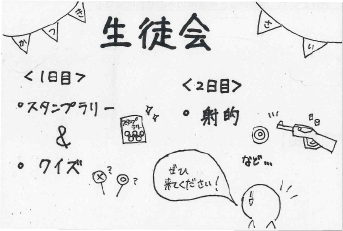 かつき
さい
生徒会
<1日目>
・スタンプラリー
&
・クイズ
スタンプ
ラリー
? ?
<2日目>
・射的
など…
ぜひ
来てください!